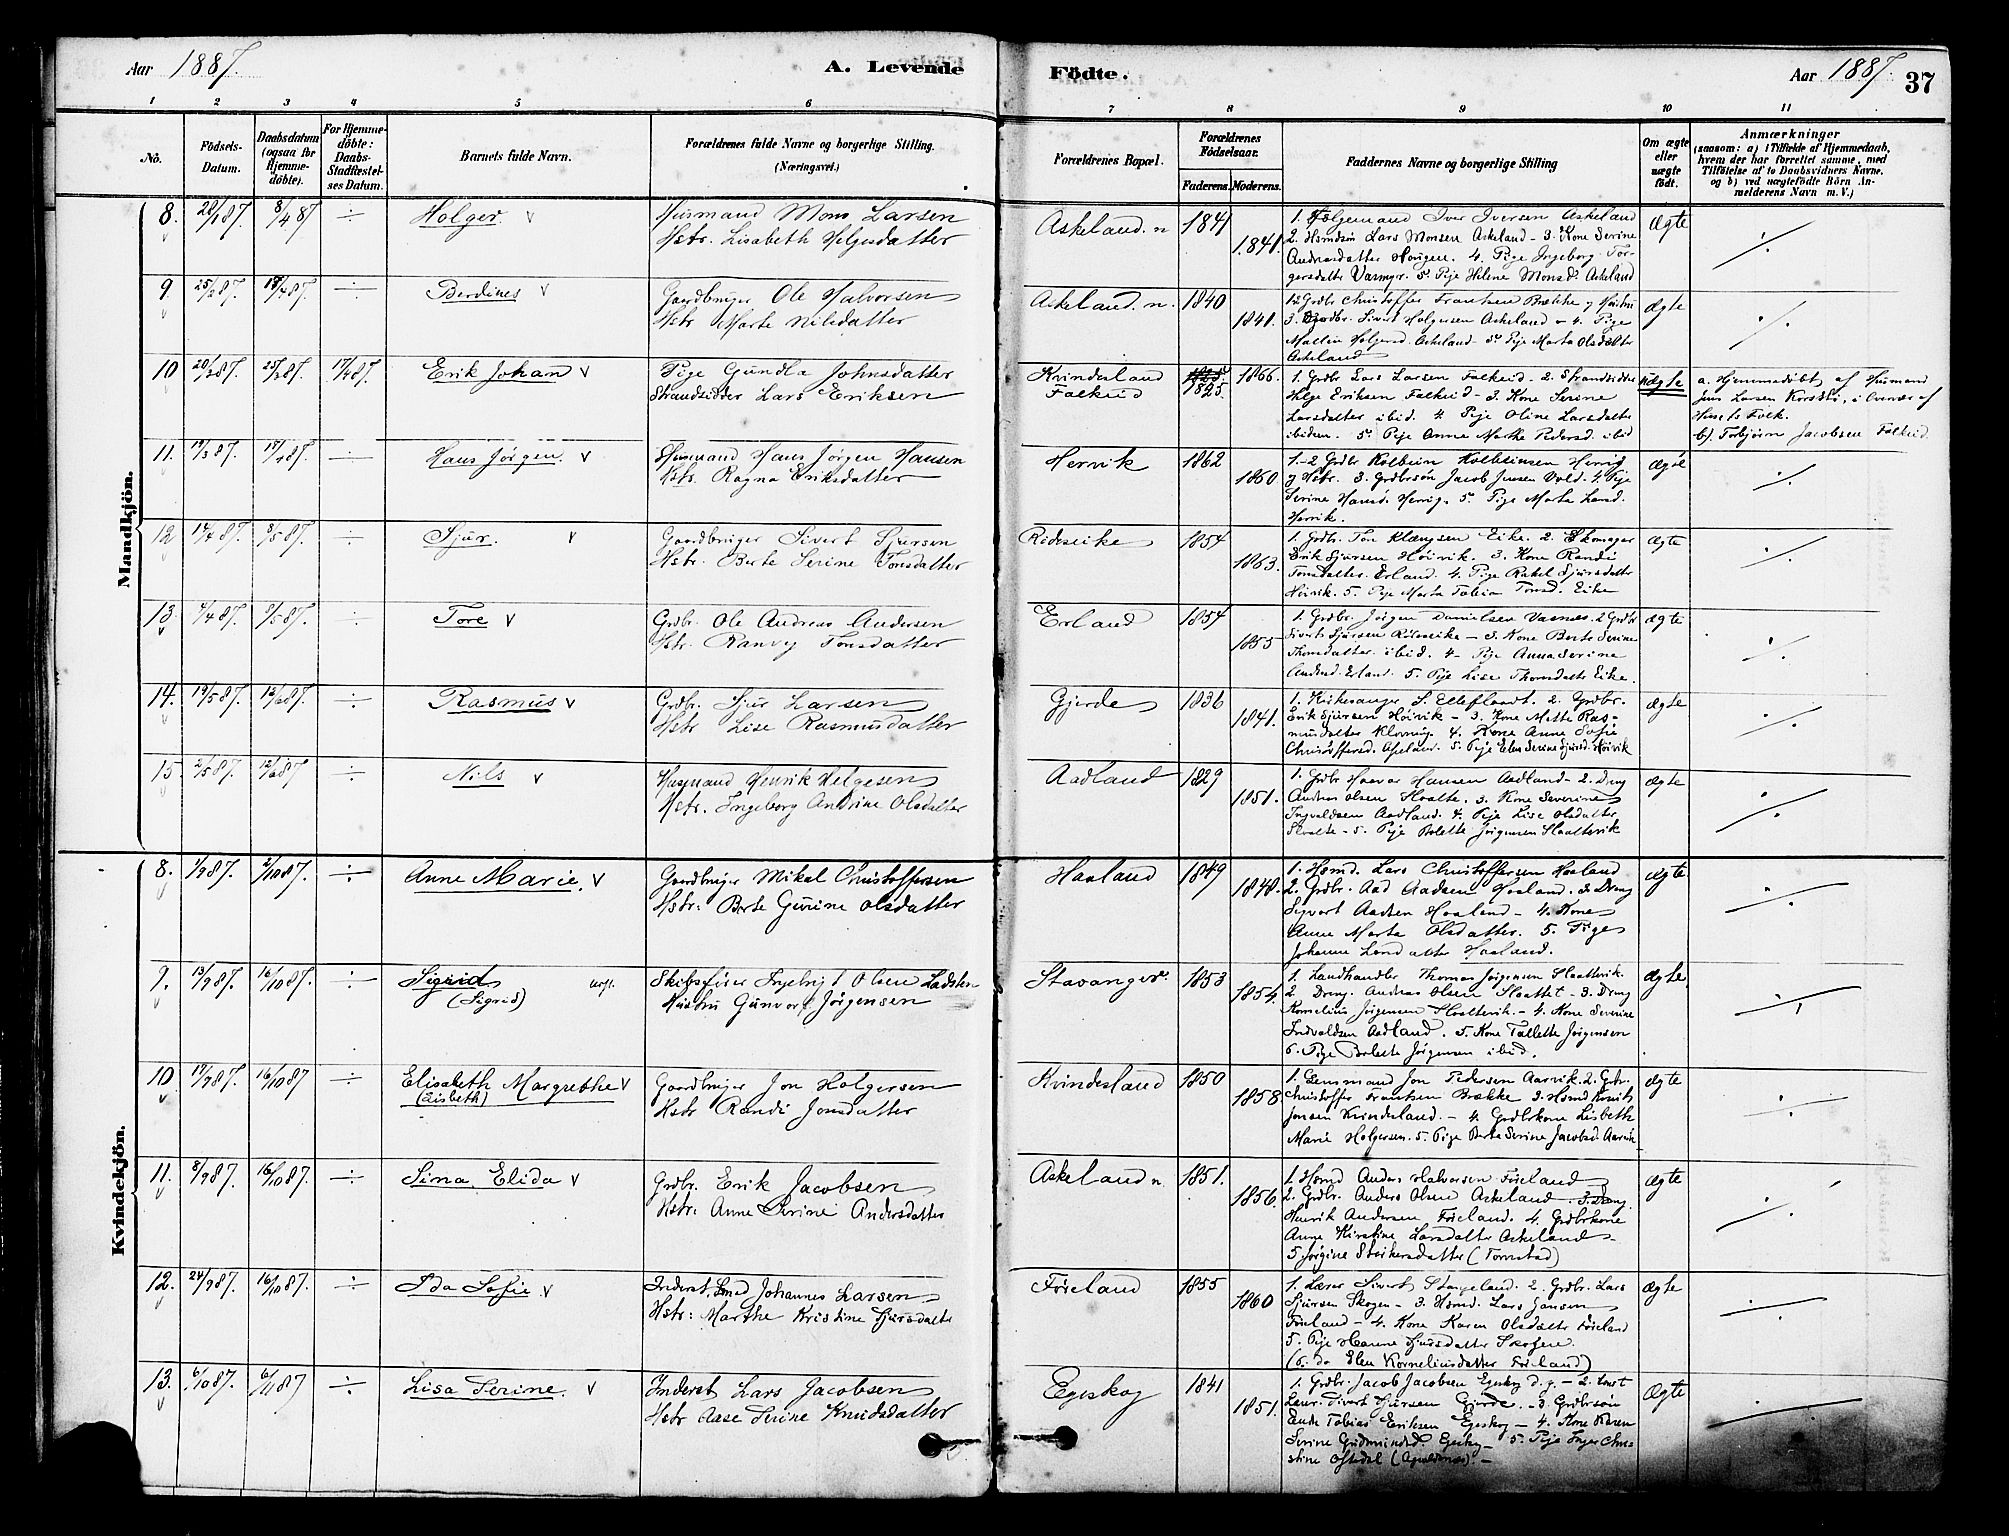 Aar 1887. A. Levende Födte. Aar 1887. 37
1 2 3 4 5 6 7 8 9 10 11
No. Födsels-Datum. Daabsdatum (ogsaa for Hjemme-döbte). For Hjemme-döbte: Daabs-Stadfæstel-ses Datum. Barnets fulde Navn. Forældrenes fulde Navne og borgerlige Stilling. (Næringsvei.) Forældrenes Bopæl. Forældrenes Födselsaar. Faderens. Moderens. Faddernes Navne og borgerlige Stilling Om ægte eller uægte födt. Anmærkninger (saasom: a) i Tilfælde af Hjemmedaab, hvem der har forrettet samme, med Tilföielse af to Daabsvidners Navne, og b) ved uægtefödte Börn An-melderens Navn m. V.)
Mandkjön.
8. 20/1 87. 8/4 87 ÷ Holger. v
Husmand Mons Larsen
Hstr. Lisabeth Helgesdatter
Askeland. n 1841 1841.
1. Følgemand Iver Iversen Askeland
2. Husmdsøn Lars Monsen Askeland - 3. Kone Serine
Andreasdatter Hougen. 4. Pige Ingeborg Tor-
gersdatter Varmyr. 5. Pige Helene Monsd. Askeland
Ægte ·/·
9. 25/2 87. 18/4 87. ÷ Berdines v
Gaardbruger Ole Halvorsen
Hstr Marte Nilsdatter
Askeland. n. 1840 1841.
1-2 Grdbr Christoffer Frantzen Bække og Hustru
3. Grdbr. Sivert Holgersen Askeland - 4. Pige
Mallin Holgersd. Askeland - 5. Pige Marta Olsdatter
Askeland
Ægte ·/·
10 20/2 87. 25/3 87. 17/4 87. Erik Johan v
Pige Gundla Johnsdatter
Strandsidder Lars Eriksen
Kvindesland
Falkeid
1825. 1866.
1. Grdbr Lars Larsen Falkeid. 2. Strandsidder
Helge Eriksen Falkeid - 3. Kone Serine
Larsdatter ibid. 4 Pige Oline Larsdatter
ibidem. 5. Pige Anne Marthe Pedersd. ibid
Uægte
a. Hjemmedøbt af Husmand
Jens Larsen Korsthi, i Overvær af
Husets Folk.
b). Torbjørn Jacobsen Falkeid.
11. 19/3 87. 17/4 87. ÷ Hans Jørgen. v
Husmand Hans Jørgen Hansen
Hstr. Ragna Eriksdatter
Hervik 1862 1860
1.-2 Grdbr Kolbein Kolbeinsen Hervig
og Hstr. 3. Grdbrsøn Jacob Jensen Vold. 4. Pige
Serine Hansd. Hervig. 5. Pige Marta Larsd.
Hervik.
Ægte ·/·
12 14/4 87. 8/5 87. ÷ Sjur. v
Gaardbruger Sivert Sjursen
Hstr. Berte Serine Tonsdatter
Rideseike 1854 1863.
1. Grdbr. Ton Klængsen Eike. 2. Skomager
Erik Sjursen Høivik. 3. Kone Randi
Tonsdatter Erland. 4. Pige Rakel Sjursdatter
Høivik. 5. Pige Marta Tabia Tonsd. Eike
Ægte ·/·
13. 4/4 87. 9/5 87. ÷ Tore v
Grdbr. Ole Andreas Andersen
Hstr. Ranvg Tonsdatter
Erland 1854 1855
1. Grdbr. Jörgen Danielsen Vasnes. 2 Grdbr
Sivert Sjursen Rideseike - 3. Kone Berte Serine
Thonsdatter ibid. 4- Pige Anna Serine
Andersd Erland. 5. Pige Lise Thonsdatter Eike.
Ægte ·/·
14. 19/5 87. 12/6 87. ÷ Rasmus v
Grdbr. Sjur Larsen
Hstr Lise Rasmusdatter
Gjerde 1836 1841.
1. Kirkesanger S. Elleflaadt. 2. Grdbr.
Erik Sjursen Höivik - 3. Kone Mette Ras-
musdatter Klovning. 4. Kone Anne Sofie
Christoffersd. Apeland. 5. Pige Elen Serine Sjursd. Höivik
Ægte ·/·
15. 2/5 87. 12/6 87. ÷ Nils v
Husmand Henrik Helgesen
Hstr. Ingeborg Andrine Olsdatter
Aadland 1829 1851.
1. Grdbr Haavar Hansen Aadland - 2. Dreng
Andreas Olsen Slaatte. 3. Kone Severine
Ingvaldsen Aadland. 4. Pige Lise Olsdatter
Slaatte - 5. Pige Bolette Jørgensen Slaattevik
Ægte ·/·
Kvindekjön.
8. 1/9 87. 2/10 87. ÷ Anne Marie. v
Gaardbruger Mikal Christoffersen
Hstr: Berte Gurine Olsdatter
Haaland 1849 1848.
1. Husmd. Lars Christoffersen Haaland
2. Grdbr. Aad Aadsen Haaland. 3. Dreng
Sigvart Aadsen Haaland - 4. Kone
Anne Marta Olsdatter. 5. Pige
Johanne Larsdatter Haaland.
Ægte ·/·
9. 13/9 87. 16/10 87. ÷ Sigrid
(Sigrid)
Skibsfører Ingebrigt Olsen Ladsten
Hustru Gunvor Jørgensen
Stavanger. 1853 1854.
1. Landhandler Thomas Jörgensen Slaattevik.
2. Dreng. Andreas Olsen Slaattet - 3. Dreng
Kornelius Jörgensen Slaattevik. - 4. Kone Severine
Indvaldsen Aadland. 5. Kone Tallette Jørgensen
6. Pige Bolette Jørgensen ibid.
Ægte ·/·
10 17/9 87. 16/10 87 ÷ Elisabeth Margrethe v
(Lisbeth)
Gaardbruger Jon Holgersen
Hstr Randi Jonsdatter
Kvindesland 1850 1858
1. Lensmand Jon Pedersen Aarvik. 2. Grdbr.
Christoffer Frantzen Brække 3. Husmd Knut
Jonsen Kvindesland. - 4. Grdbrkone Lisbeth
Marie Holgersen. 5. Pige Berte Serine Jacobsd. Aarvik
Ægte ·/·
11. 8/9 87. 16/10 87. ÷ Sina. Elida v
Grdbr. Erik Jacobsen
Hstr: Anne Serine Andersdatter
Askeland n. 1851. 1856.
1. Husmd Anders Halvorsen Föreland
2. Grdbr. Anders Olsen Askeland. 3. Dreng
Henrik Andersen Föreland. 4. Grdbrkone
Anne Kirstine Larsdatter Askeland
5. Jørgine Sivkersdatter (Tornstad)
Ægte ·/·
12. 24/9 87. 16/10 87. ÷ Ida Sofie. v
Inderst, Smd Johannes Larsen
Hstr: Marthe Kristine Sjursdatter
Føreland 1855 1860
1. Lærer Sivert Stangeland. 2. Grdbr. Lars
Sjursen Skogen - 3. Husmd. Lars Jansen
Föreland - 4. Kone Karen Olsdatter Føreland
5. Pige Hanne Sjursdatter Skogen.
(6. do Elen Korneliusdatter Föreland)
Ægte ·/·
13. 6/10 87. 6/11 87 ÷ Lisa Serine. v
Inderst Lars Jacobsen
Hstr Aase Serine Knudsdatter
Egeskog 1841 1851.
1. Grdbr. Jacob Jacobsen Egeskog d.y. - 2.
Lærer Sivert Sjursen Gjerde. - 3 Grdbrsøn
Tobias Eriksen Egeskog - 4. Kone Karen
Serine Gudmundsd. Egeskog - 5. Pige Inger Chri-
stine Oftedal (Apeldnes). -
Ægte ·/·